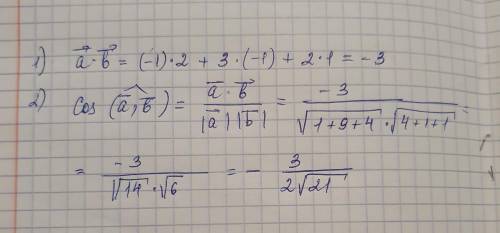 1) a⃗·b⃗ = (-1)·2 + 3·(-1) + 2·1 = -3
2) cos (a⃗,^b⃗) = a⃗·b⃗ / |a⃗||b⃗| = -3 / √(1+9+4)·√(4+1+1) =
= -3 / √14·√6 = - 3 / 2√21